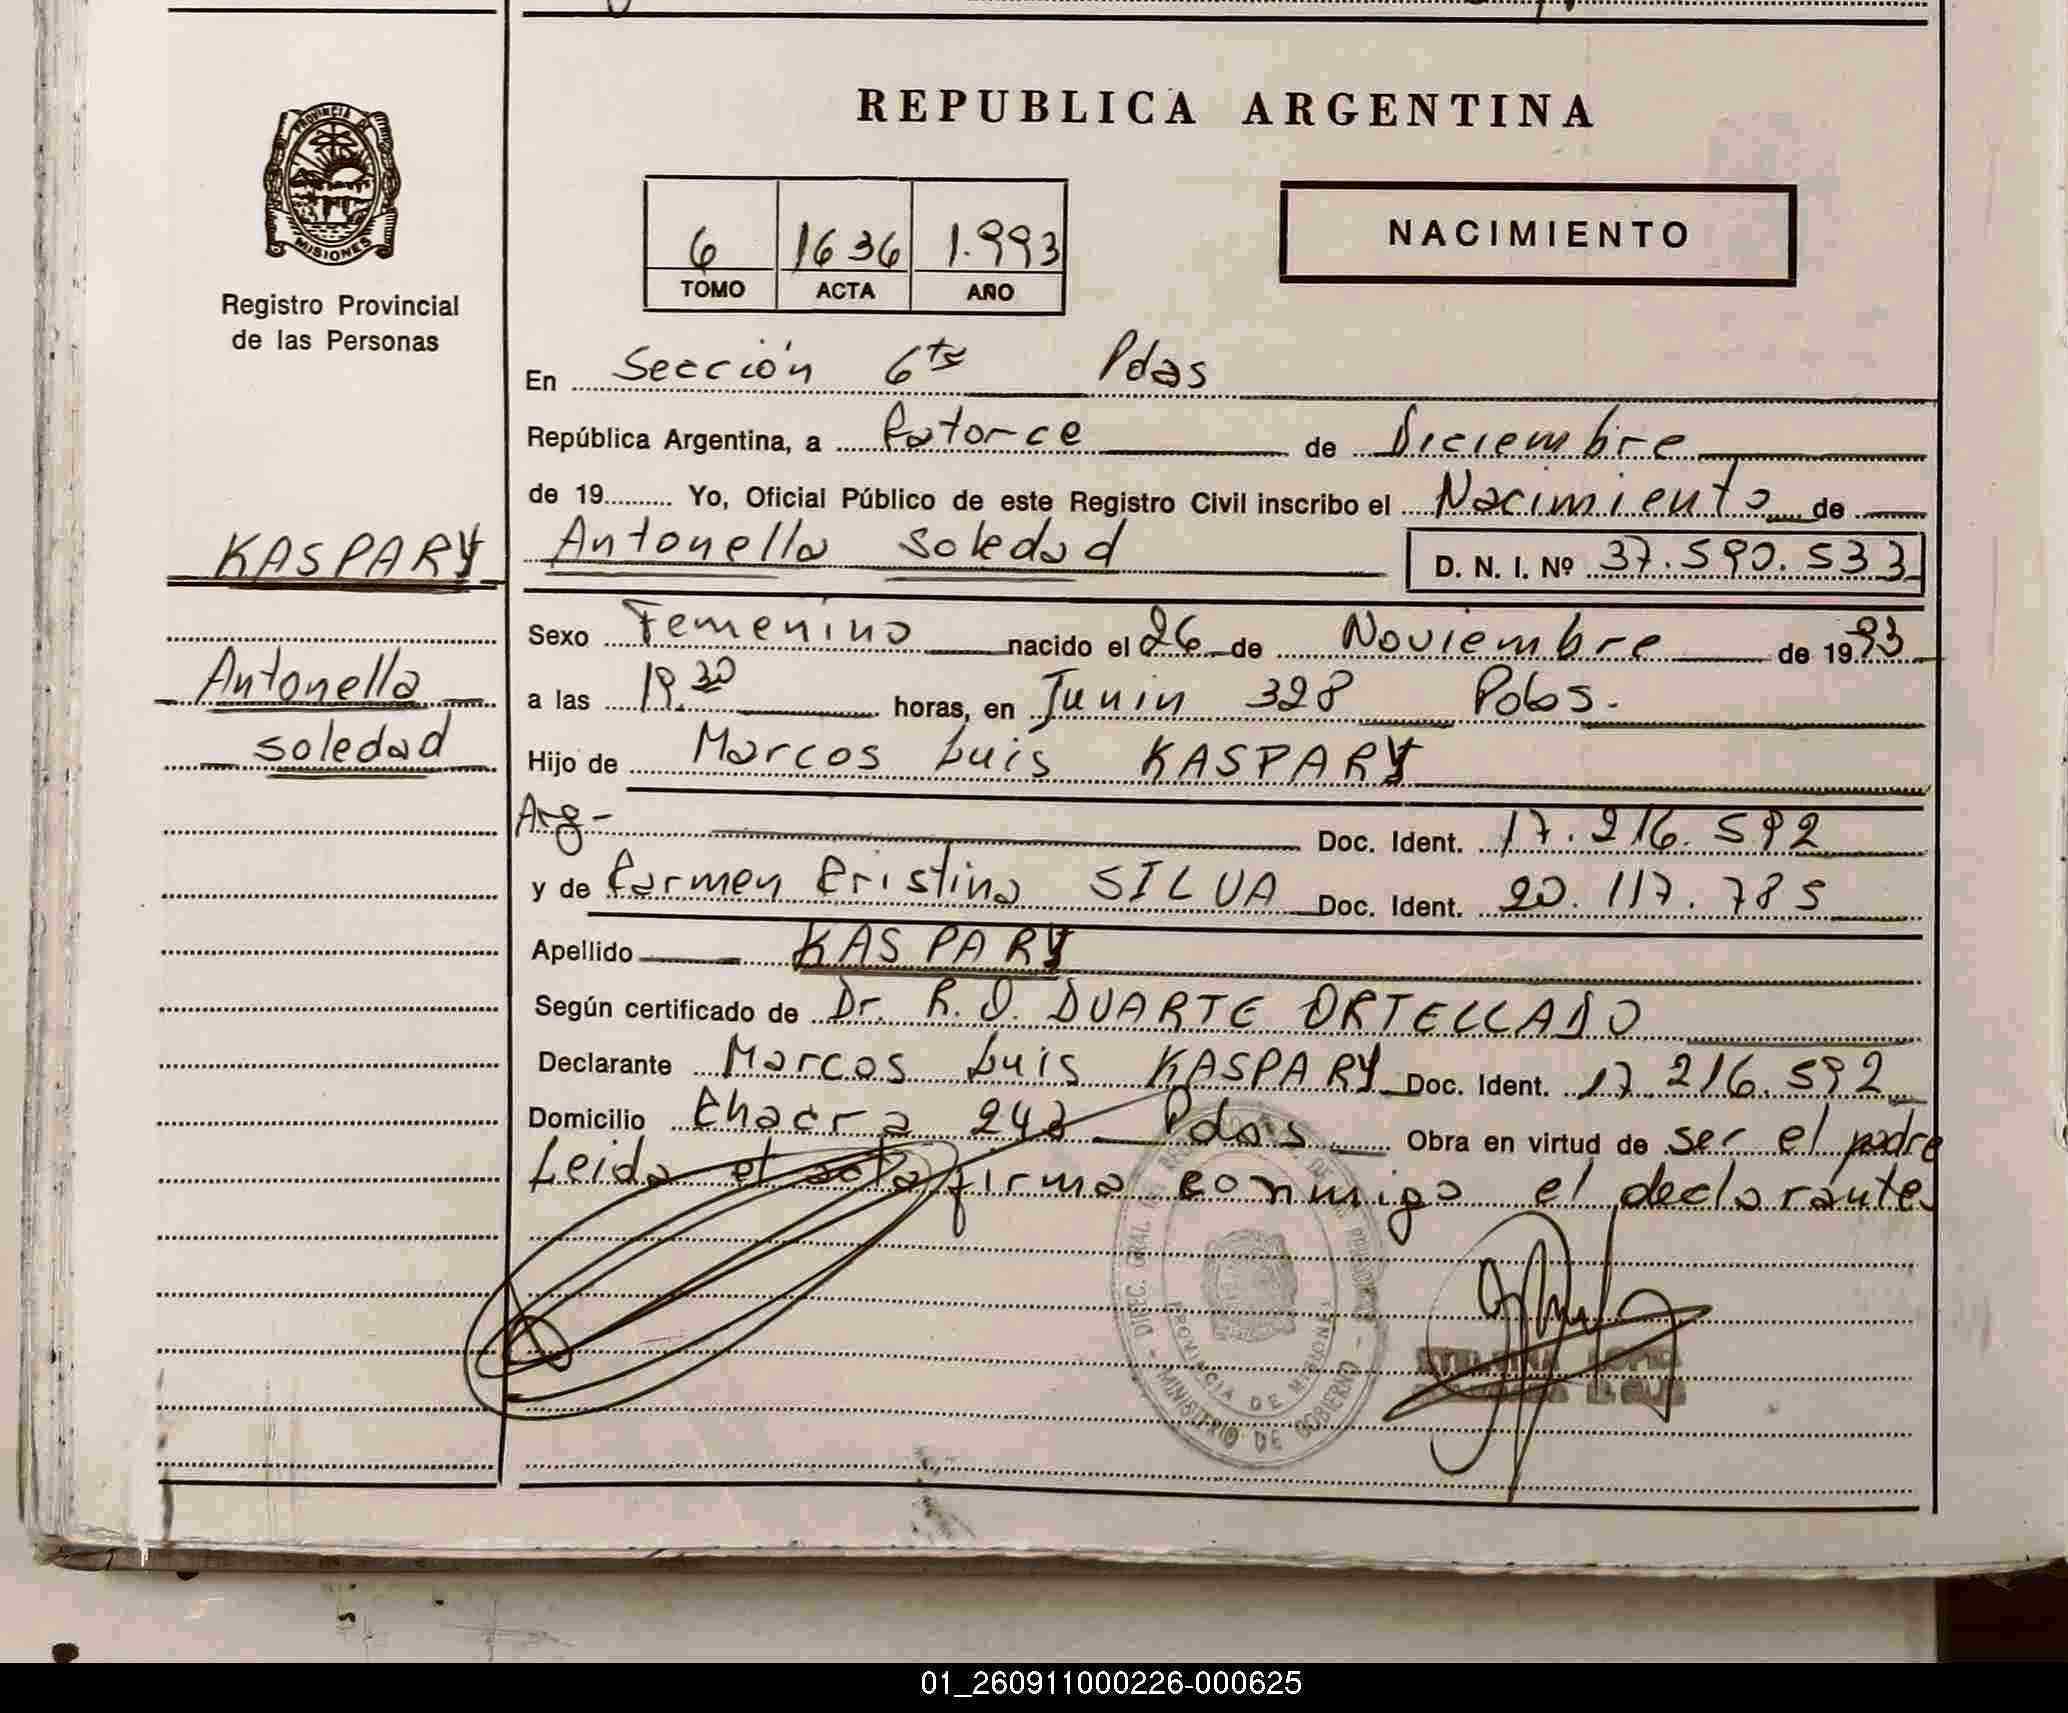 REPUBLICA ARGENTINA
PROVINCIA DE
MISIONES
Registro Provincial
de las Personas
6 1636 1.993
TOMO ACTA AÑO
NACIMIENTO
En Sección 6ta Pdas
República Argentina, a Catorce de Diciembre
de 19 Yo, Oficial Público de este Registro Civil inscribo el Nacimiento de
KASPARY
Antonella Soledad D. N. I. Nº 37.590.533
Sexo Femenino nacido el 26 de Noviembre de 1993
Antonella
soledad
a las 19.30 horas, en Junin 328 Pdas.
Hijo de Marcos Luis KASPARY
Arg- Doc. Ident. 17.216.592
y de Carmen Cristina SILVA Doc. Ident. 20.117.785
Apellido KASPARY
Según certificado de Dr. R. O. DUARTE ORTELLADO
Declarante Marcos Luis KASPARY Doc. Ident. 17.216.592
Domicilio Chacra 242 Pdas Obra en virtud de ser el padre
Leida el acta firma conmigo el declarante
PROVINCIA DE MISIONES
MINISTERIO DE GOBIERNO
01_260911000226-000625